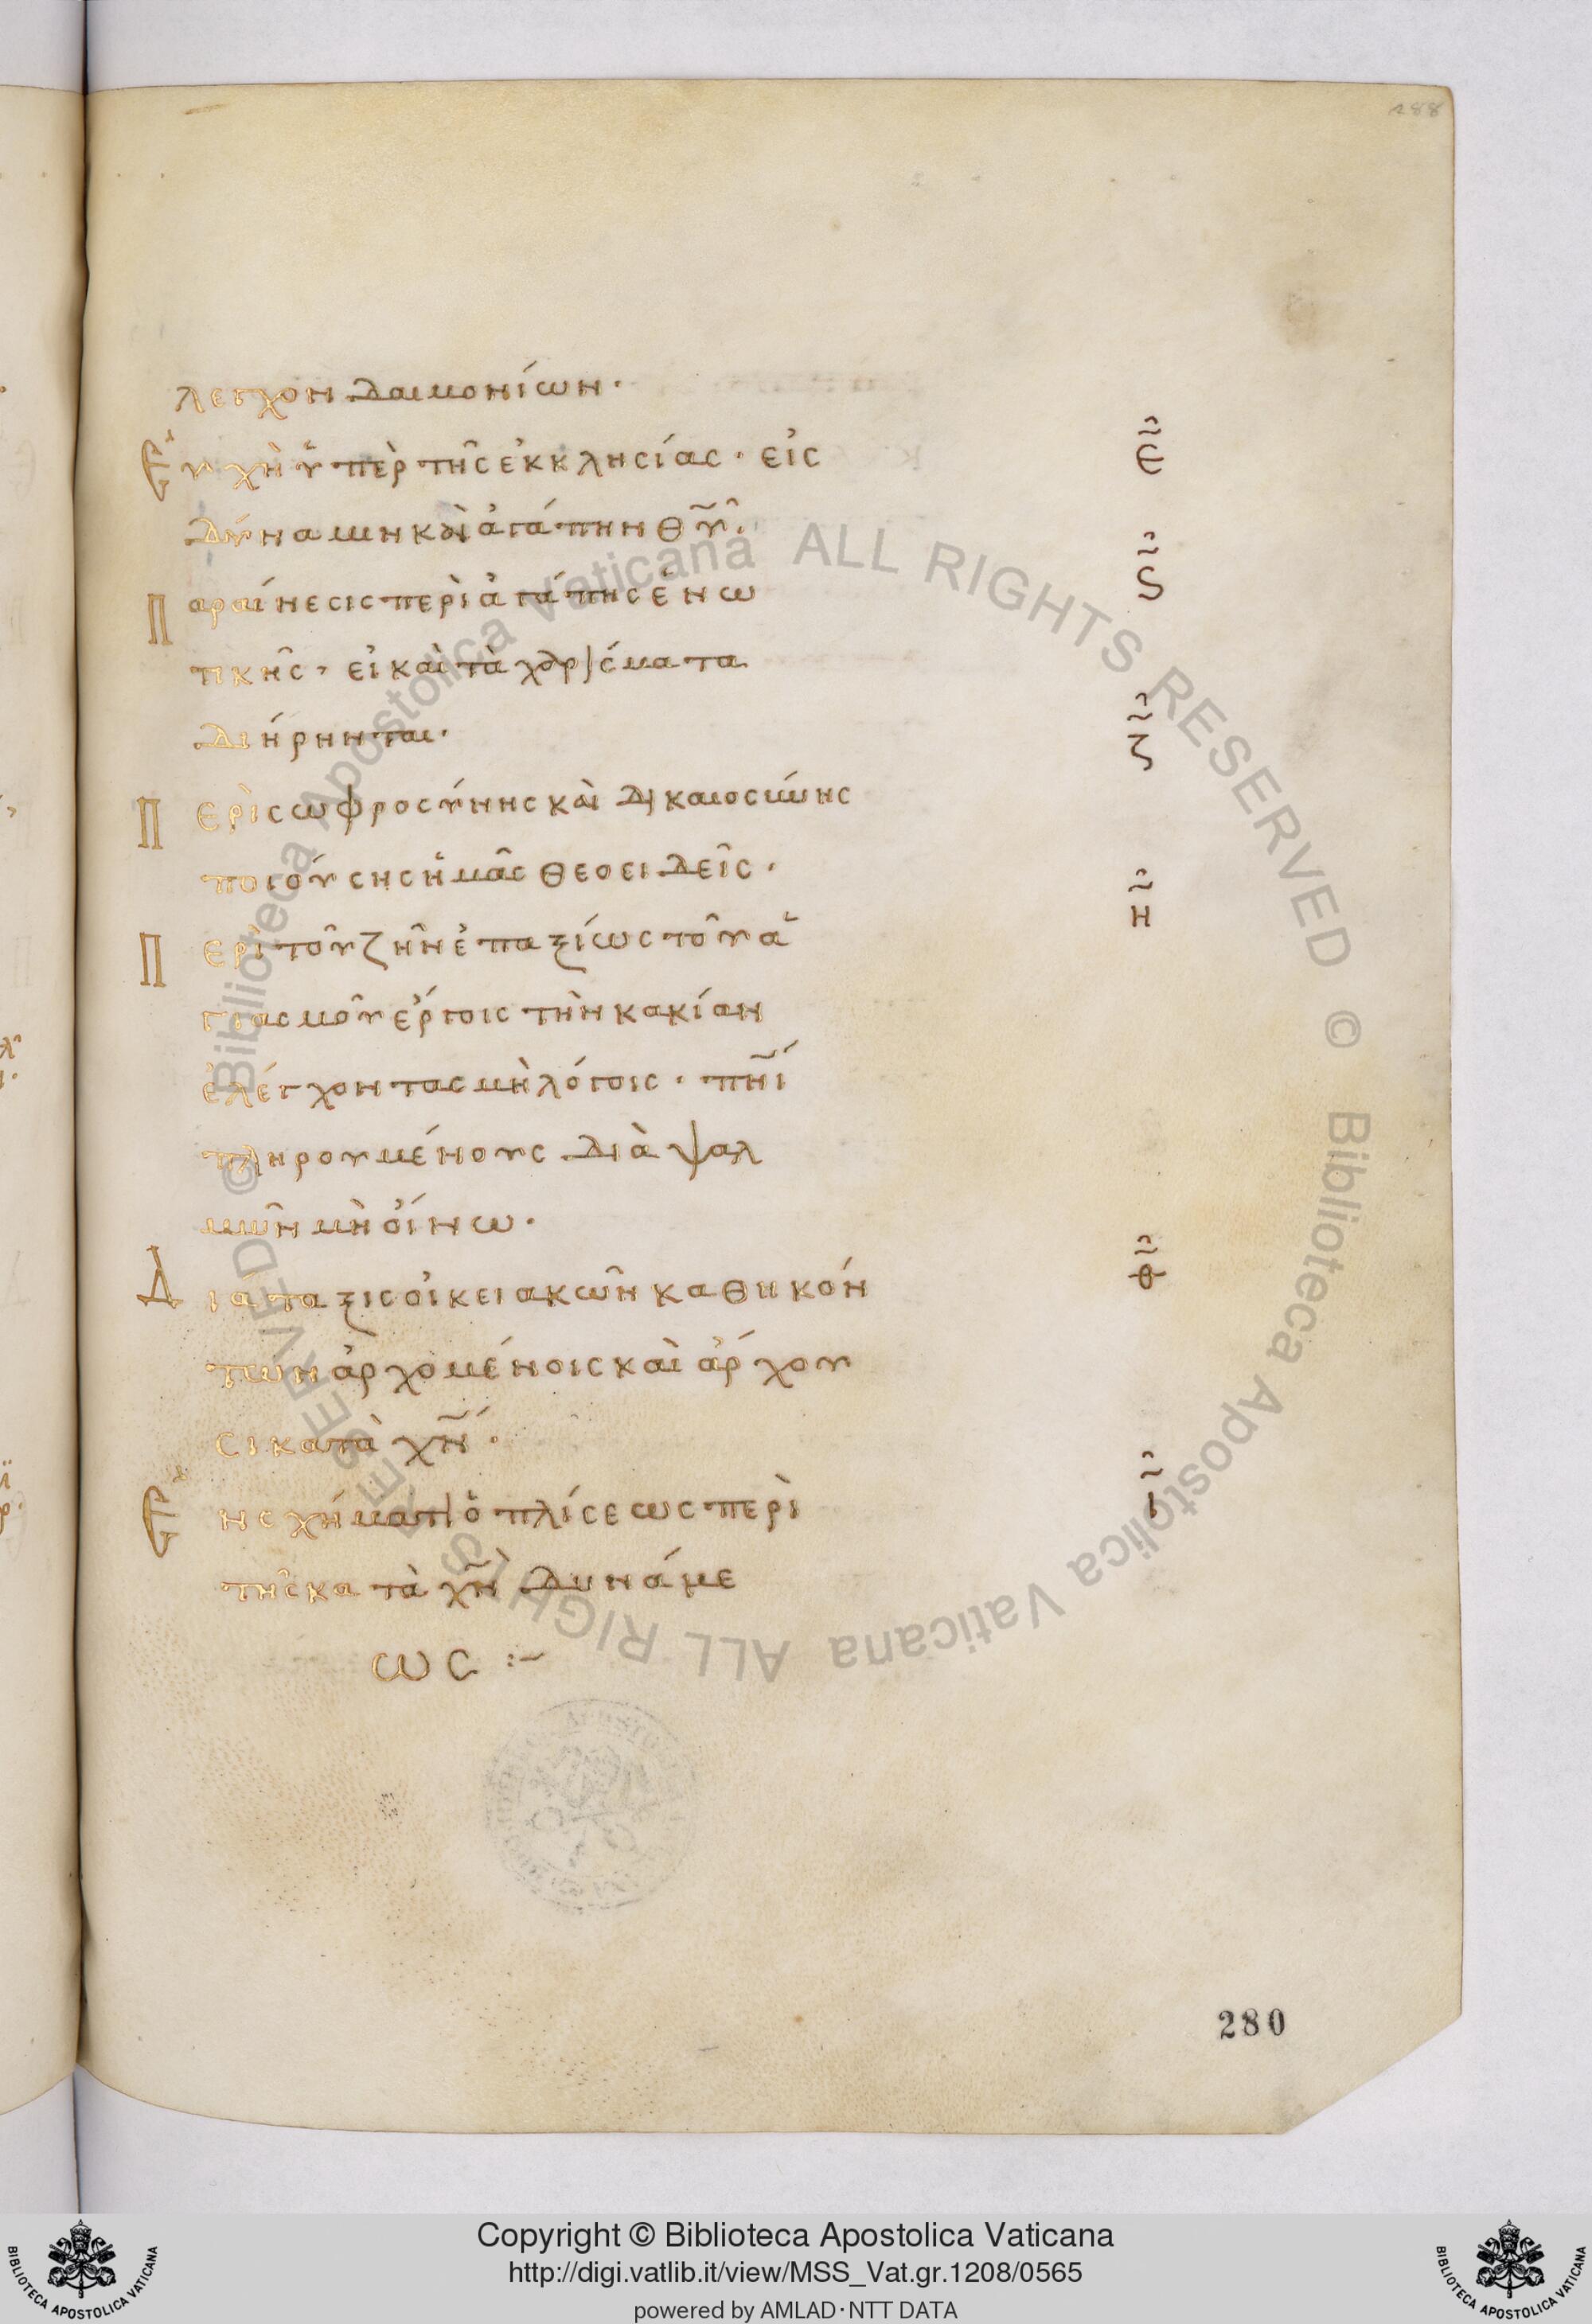 188
λεγχον δαιμονίων·
Εὐχὴ ὑπὲρ τῆς ἐκκλησίας· εἰς
ε
δύναμιν καὶ ἀγάπην θυ·
Παραίνεσις περὶ ἀγάπης ἑνω
ς
τικῆς, εἰ καὶ τὰ χαρίσματα
διήρηνται·
ζ
Περὶ σωφροσύνης καὶ δικαιοσύνης
ποιούσης ἡμᾶς θεοειδεῖς·
η
Περὶ τοῦ ζῆν ἐπαξίως τοῦ ἁ
γιασμοῦ ἔργοις τὴν κακίαν
ἐλέγχοντας μὴ λόγοις· πνι
πληρουμένους διὰ ψαλ
μῶν μὴ οἴνω·
Διάταξις οἰκειακῶν καθηκόν
θ
των ἀρχομένοις καὶ ἄρχου
σι κατὰ χν·
Ἐν σχήματι ὁπλίσεως περὶ
ι
τῆς κατὰ χν δυνάμε
ως :~
280
© Biblioteca Apostolica Vaticana ALL RIGHTS RESERVED © Biblioteca Apostolica Vaticana ALL RIGHTS RESERVED
Copyright © Biblioteca Apostolica Vaticana
http://digi.vatlib.it/view/MSS_Vat.gr.1208/0565
powered by AMLAD·NTT DATA
BIBLIOTECA APOSTOLICA VATICANA
BIBLIOTECA APOSTOLICA VATICANA